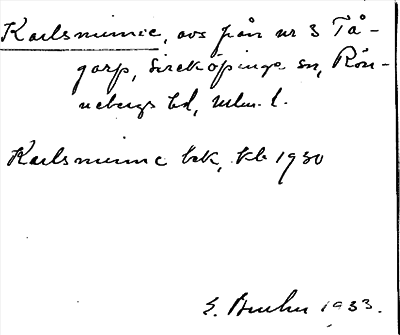 Karlsminne, avs från nr 3 Tå-
garp, Sireköpinge sn, Rön-
nebergs hd, Mlm. l.
Karlsminne bek, kb 1930
E. Bruhn 1933.